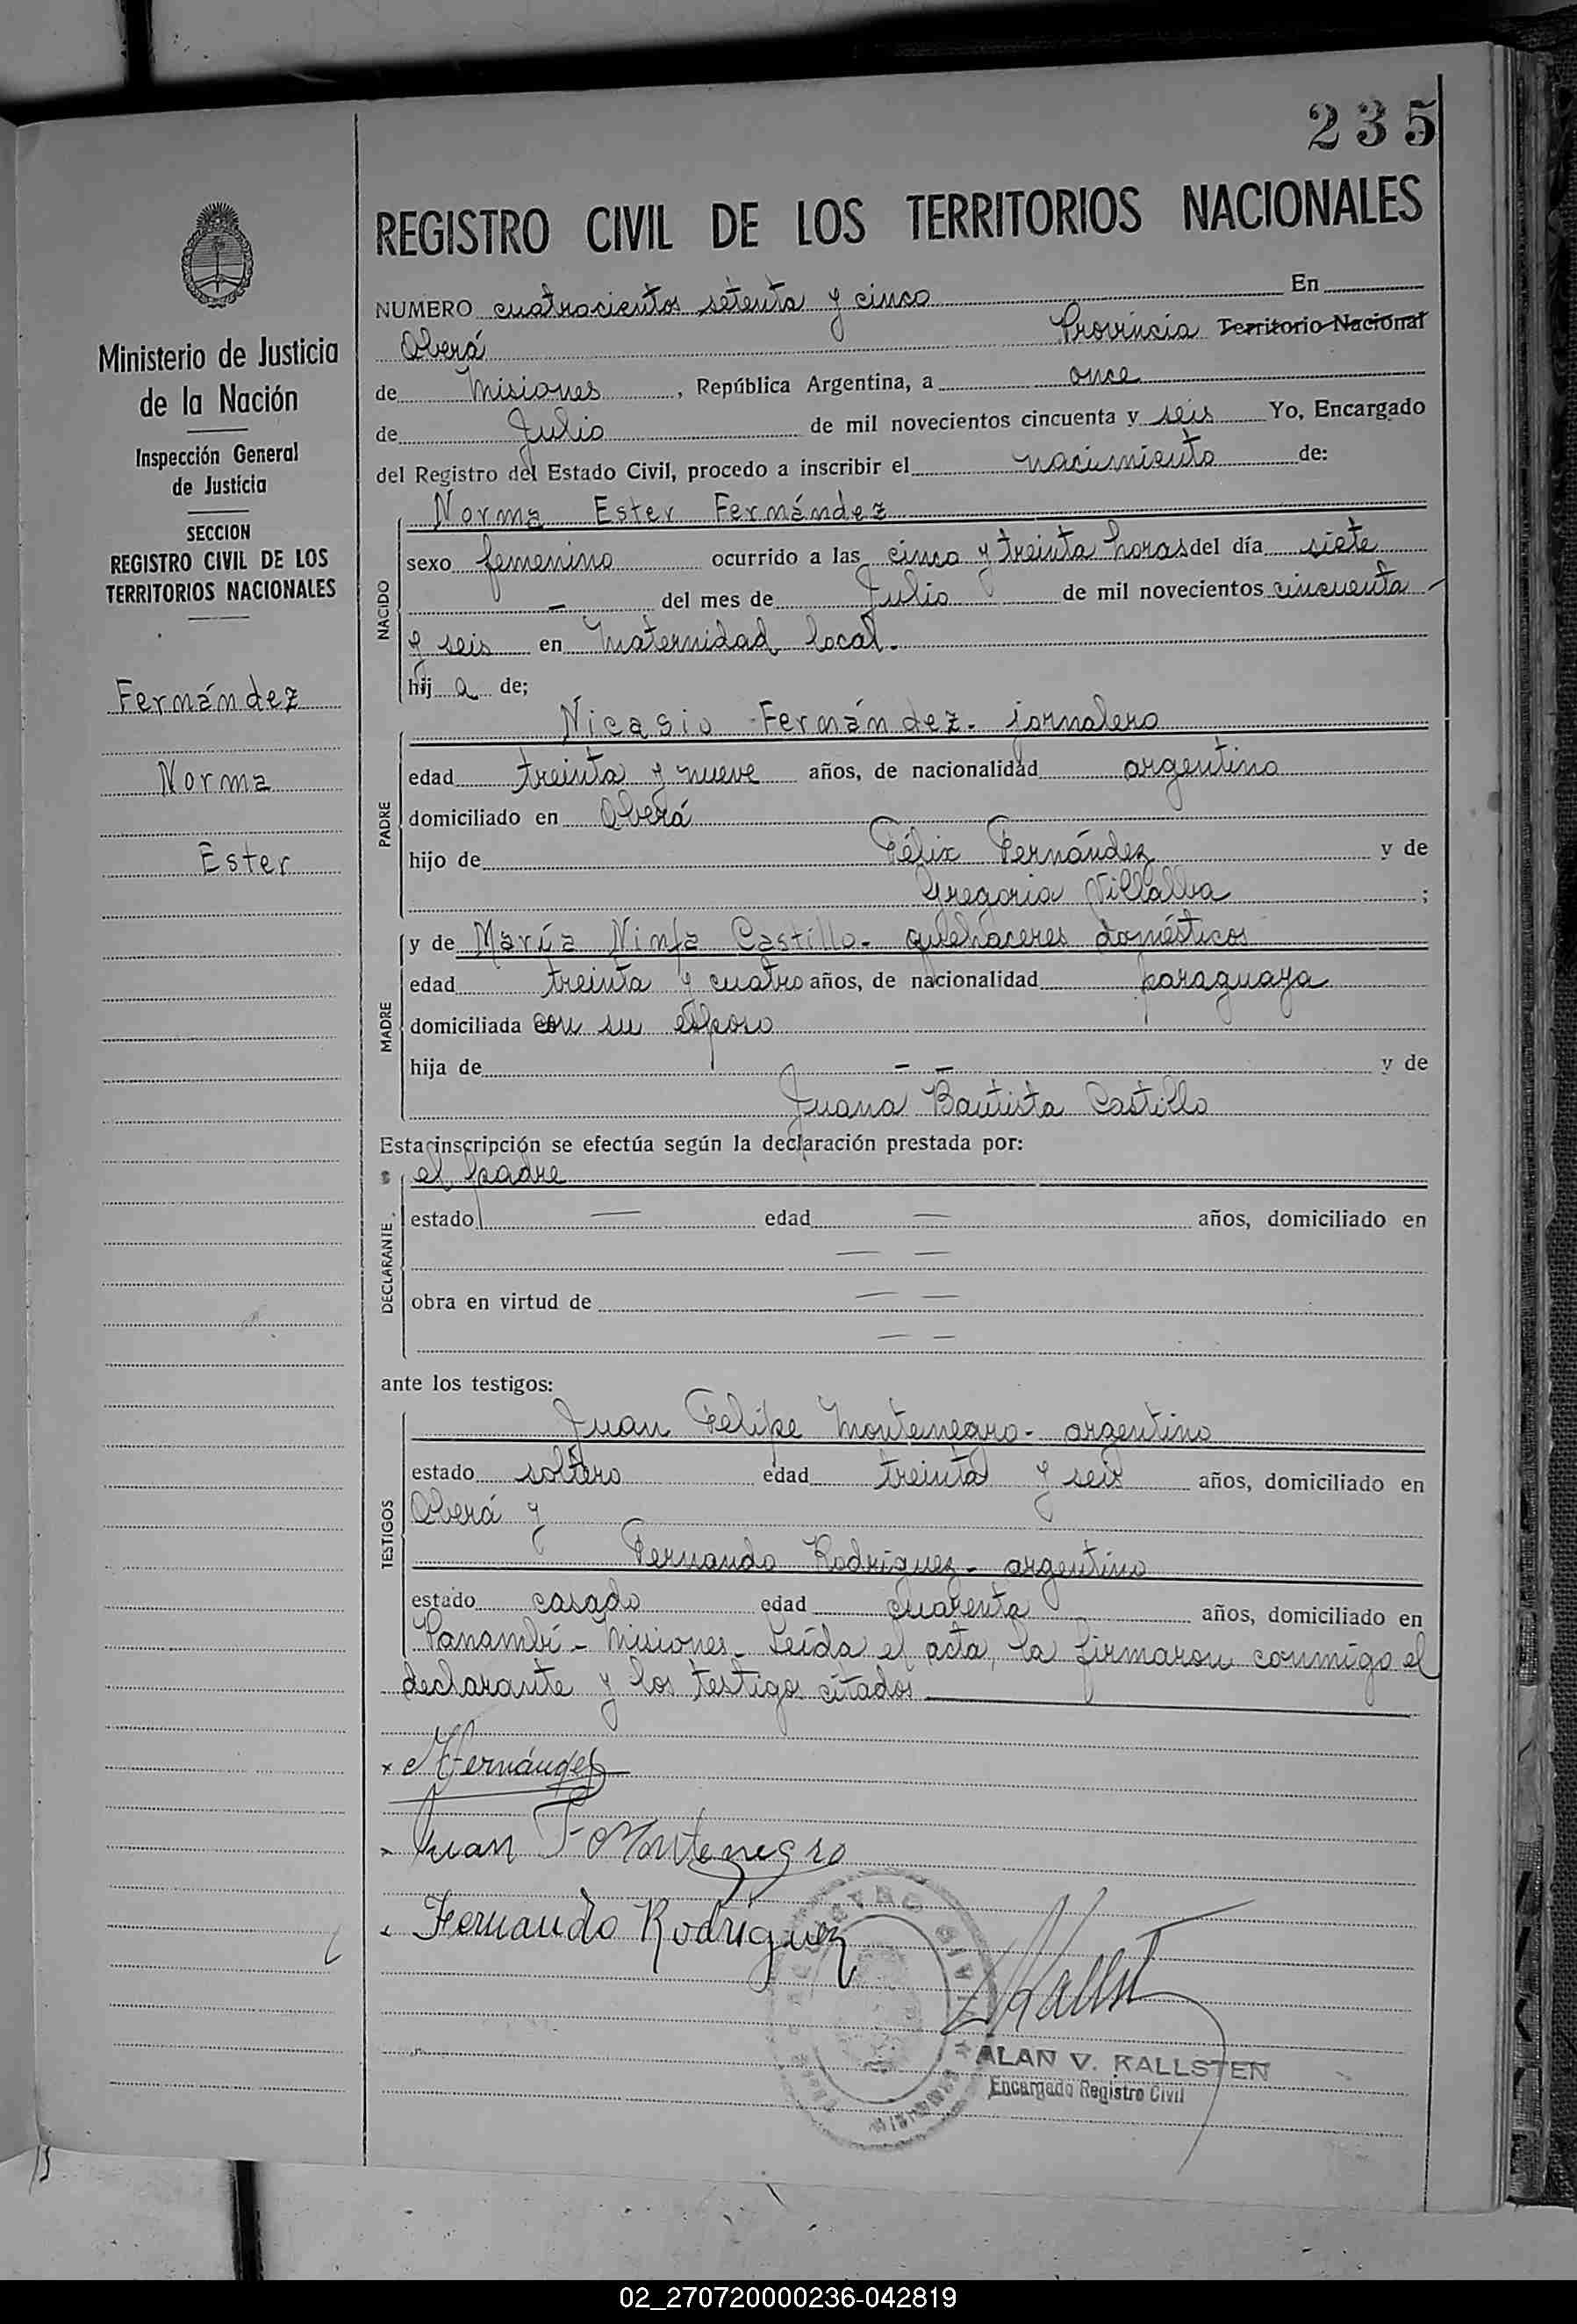 235
REGISTRO CIVIL DE LOS TERRITORIOS NACIONALES
Ministerio de Justicia
de la Nación
Inspección General
de Justicia
SECCION
REGISTRO CIVIL DE LOS
TERRITORIOS NACIONALES
Fernández
Norma
Ester
NUMERO cuatrocientos setenta y cinco En
Oberá Provincia Territorio Nacional
de Misiones, República Argentina, a once
de Julio de mil novecientos cincuenta y seis Yo, Encargado
del Registro del Estado Civil, procedo a inscribir el nacimiento de:
NACIDO
Norma Ester Fernández
sexo femenino ocurrido a las cinco y treinta horas del día siete
— del mes de Julio de mil novecientos cincuenta -
y seis en Maternidad local.
hij a de;
PADRE
Nicasio Fernández - jornalero
edad treinta y nueve años, de nacionalidad argentino
domiciliado en Oberá
hijo de Félix Fernández y de
Gregoria Villalba ;
MADRE
y de María Ninfa Castillo - quehaceres domésticos
edad treinta y cuatro años, de nacionalidad paraguaya
domiciliada con su esposo
hija de — — y de
Juana Bautista Castillo
Esta inscripción se efectúa según la declaración prestada por:
DECLARANTE
el padre
estado — edad — años, domiciliado en
— —
obra en virtud de — —
— —
ante los testigos:
TESTIGOS
Juan Felipe Montenegro - argentino
estado soltero edad treinta y seis años, domiciliado en
Oberá y
Fernando Rodriguez - argentino
estado casado edad cuarenta años, domiciliado en
Panambí - Misiones. Leída el acta, la firmaron conmigo el
declarante y los testigos citados
x N Fernández
x Juan F Montenegro
x Fernando Rodríguez
REGISTRO CIVIL
MISIONES
ALAN V. KALLSTEN
Encargado Registro Civil
02_270720000236-042819